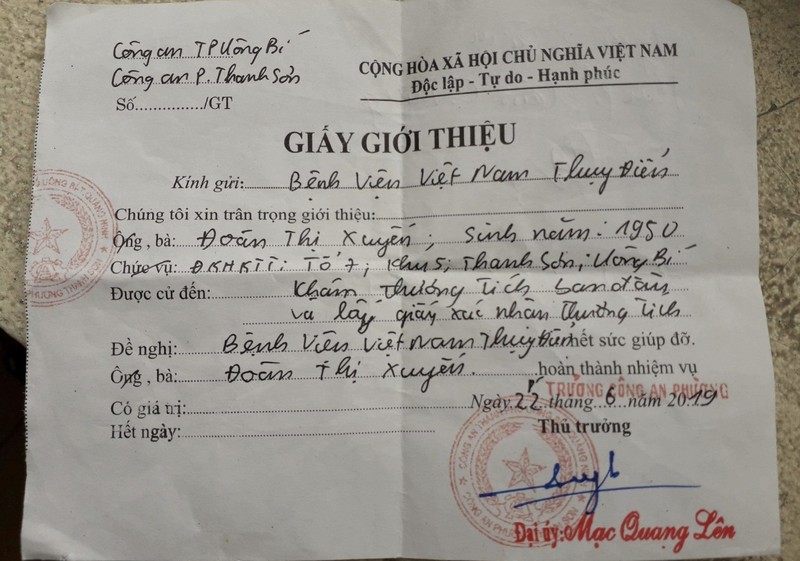 Công an TP Uông Bí
Công an P. Thanh Sơn
Số............../GT
CỘNG HÒA XÃ HỘI CHỦ NGHĨA VIỆT NAM
Độc lập - Tự do - Hạnh phúc
GIẤY GIỚI THIỆU
Kính gửi: Bệnh Viện Việt Nam Thụy Điển
Chúng tôi xin trân trọng giới thiệu:
Ông, bà: Đoàn Thị Xuyến; Sinh năm: 1950
Chức vụ: ĐKHKTT: Tổ 7; Khu 5; Thanh Sơn; Uông Bí
Được cử đến: Khám thương tích ban đầu
và lấy giấy xác nhận thương tích
Đề nghị: Bệnh Viện Việt Nam Thụy Điển hết sức giúp đỡ.
Ông, bà: Đoàn Thị Xuyến. hoàn thành nhiệm vụ
Có giá trị:
Ngày 22 tháng 6 năm 2019
Hết ngày:
TRƯỞNG CÔNG AN PHƯỜNG
Thủ trưởng
Đại úy: Mạc Quang Lên